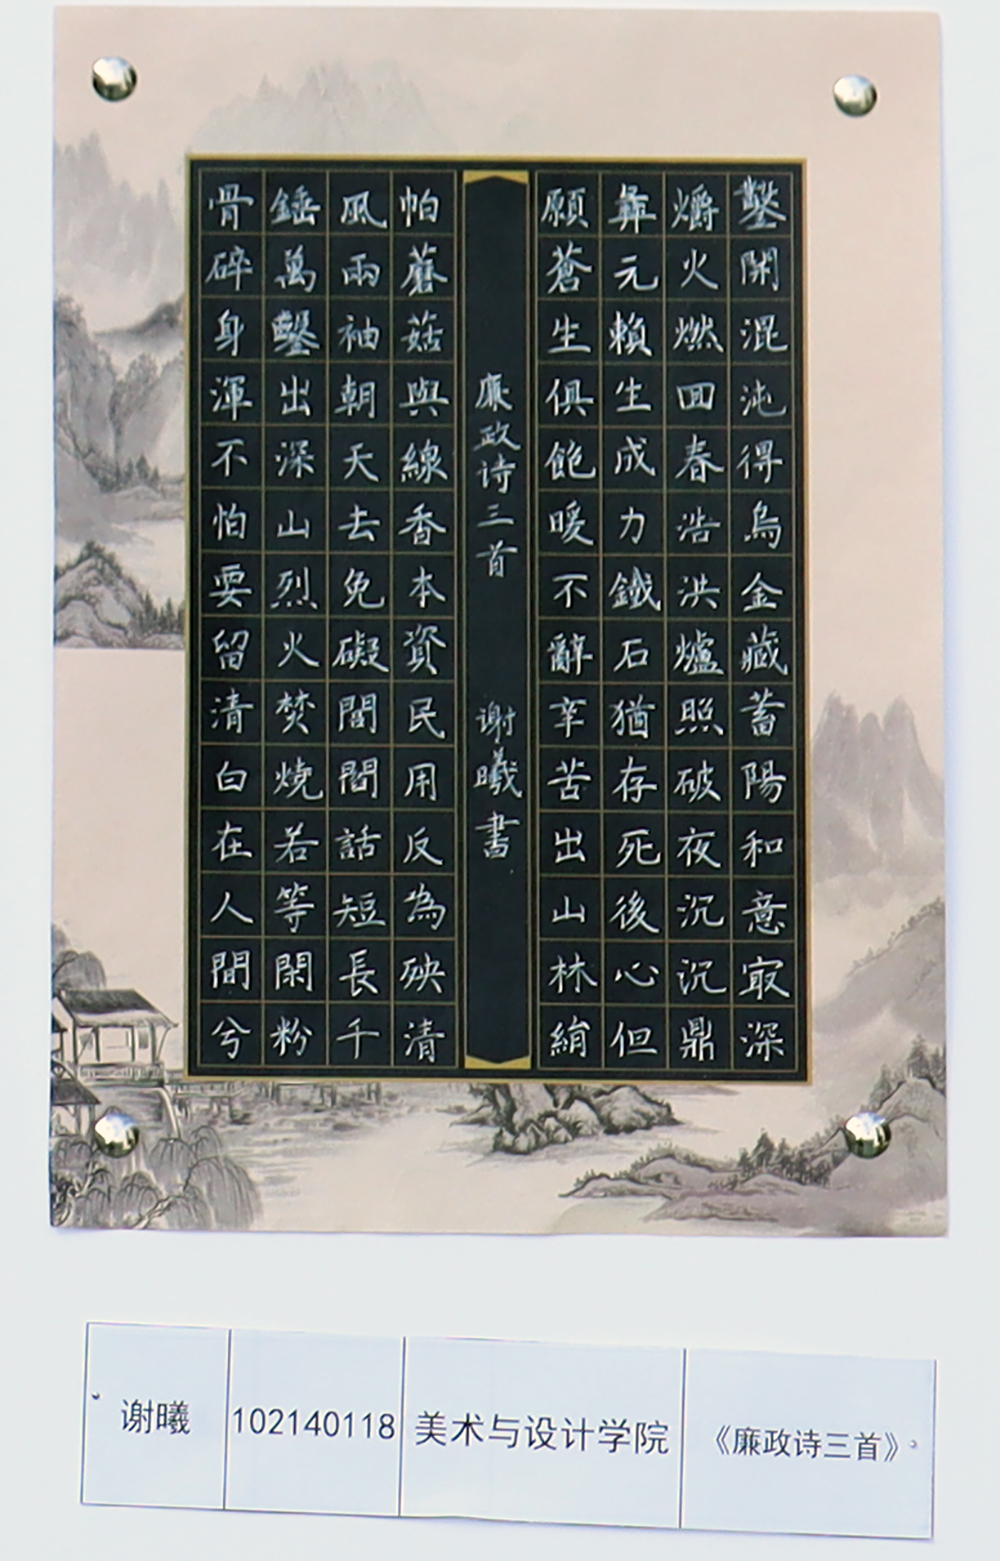 鑿開混沌得烏金藏蓄陽和意㝡深
爝火燃回春浩浩洪爐照破夜沉沉鼎
彝元賴生成力鐵石猶存死後心但
願蒼生俱飽暖不辭辛苦出山林絹
廉政诗三首 谢曦書
帕蘑菇與線香本資民用反為殃清
風兩袖朝天去免礙閭閻話短長千
錘萬鑿出深山烈火焚燒若等閑粉
骨碎身渾不怕要留清白在人間兮
谢曦 102140118 美术与设计学院 《廉政诗三首》